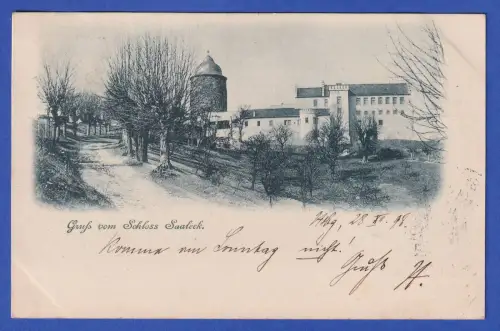 Gruß vom Schloss Saaleck.
Hbg, 28. XI. 98.
Komme am Sonntag nicht!
Gruß